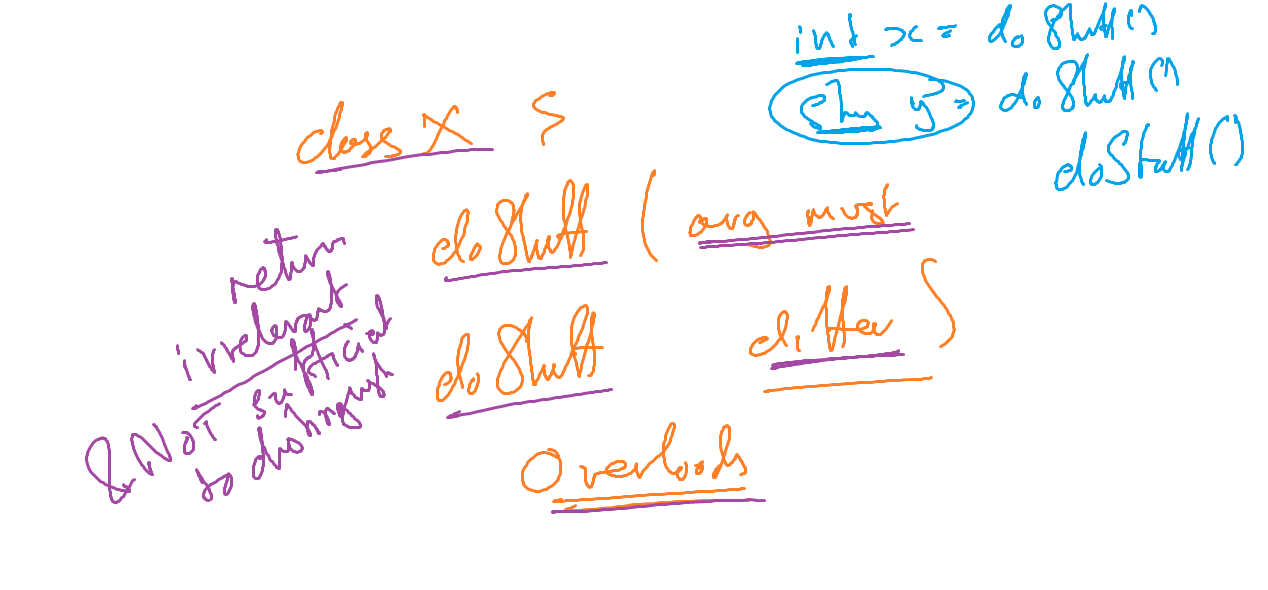 int x = doStuff()
y = doStuff()
doStuff()
class X {
doStuff ( arg must
differ )
doStuff
Overloads
return
irrelevant
& NOT sufficient
to distinguish